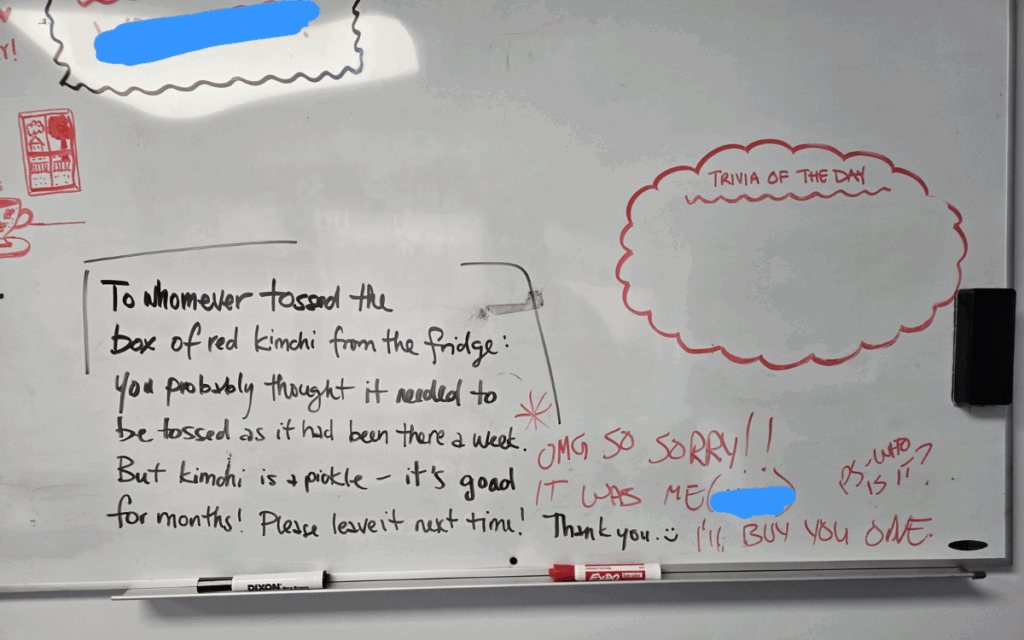 TRIVIA OF THE DAY
To whomever tossed the
box of red kimchi from the fridge:
You probably thought it needed to
be tossed as it had been there a week.
But kimchi is a pickle – it's good
for months! Please leave it next time! Thank you.
OMG SO SORRY!!
IT WAS ME (
I'LL BUY YOU ONE.
PS - WHO
IS IT?
DIXON
EXPO